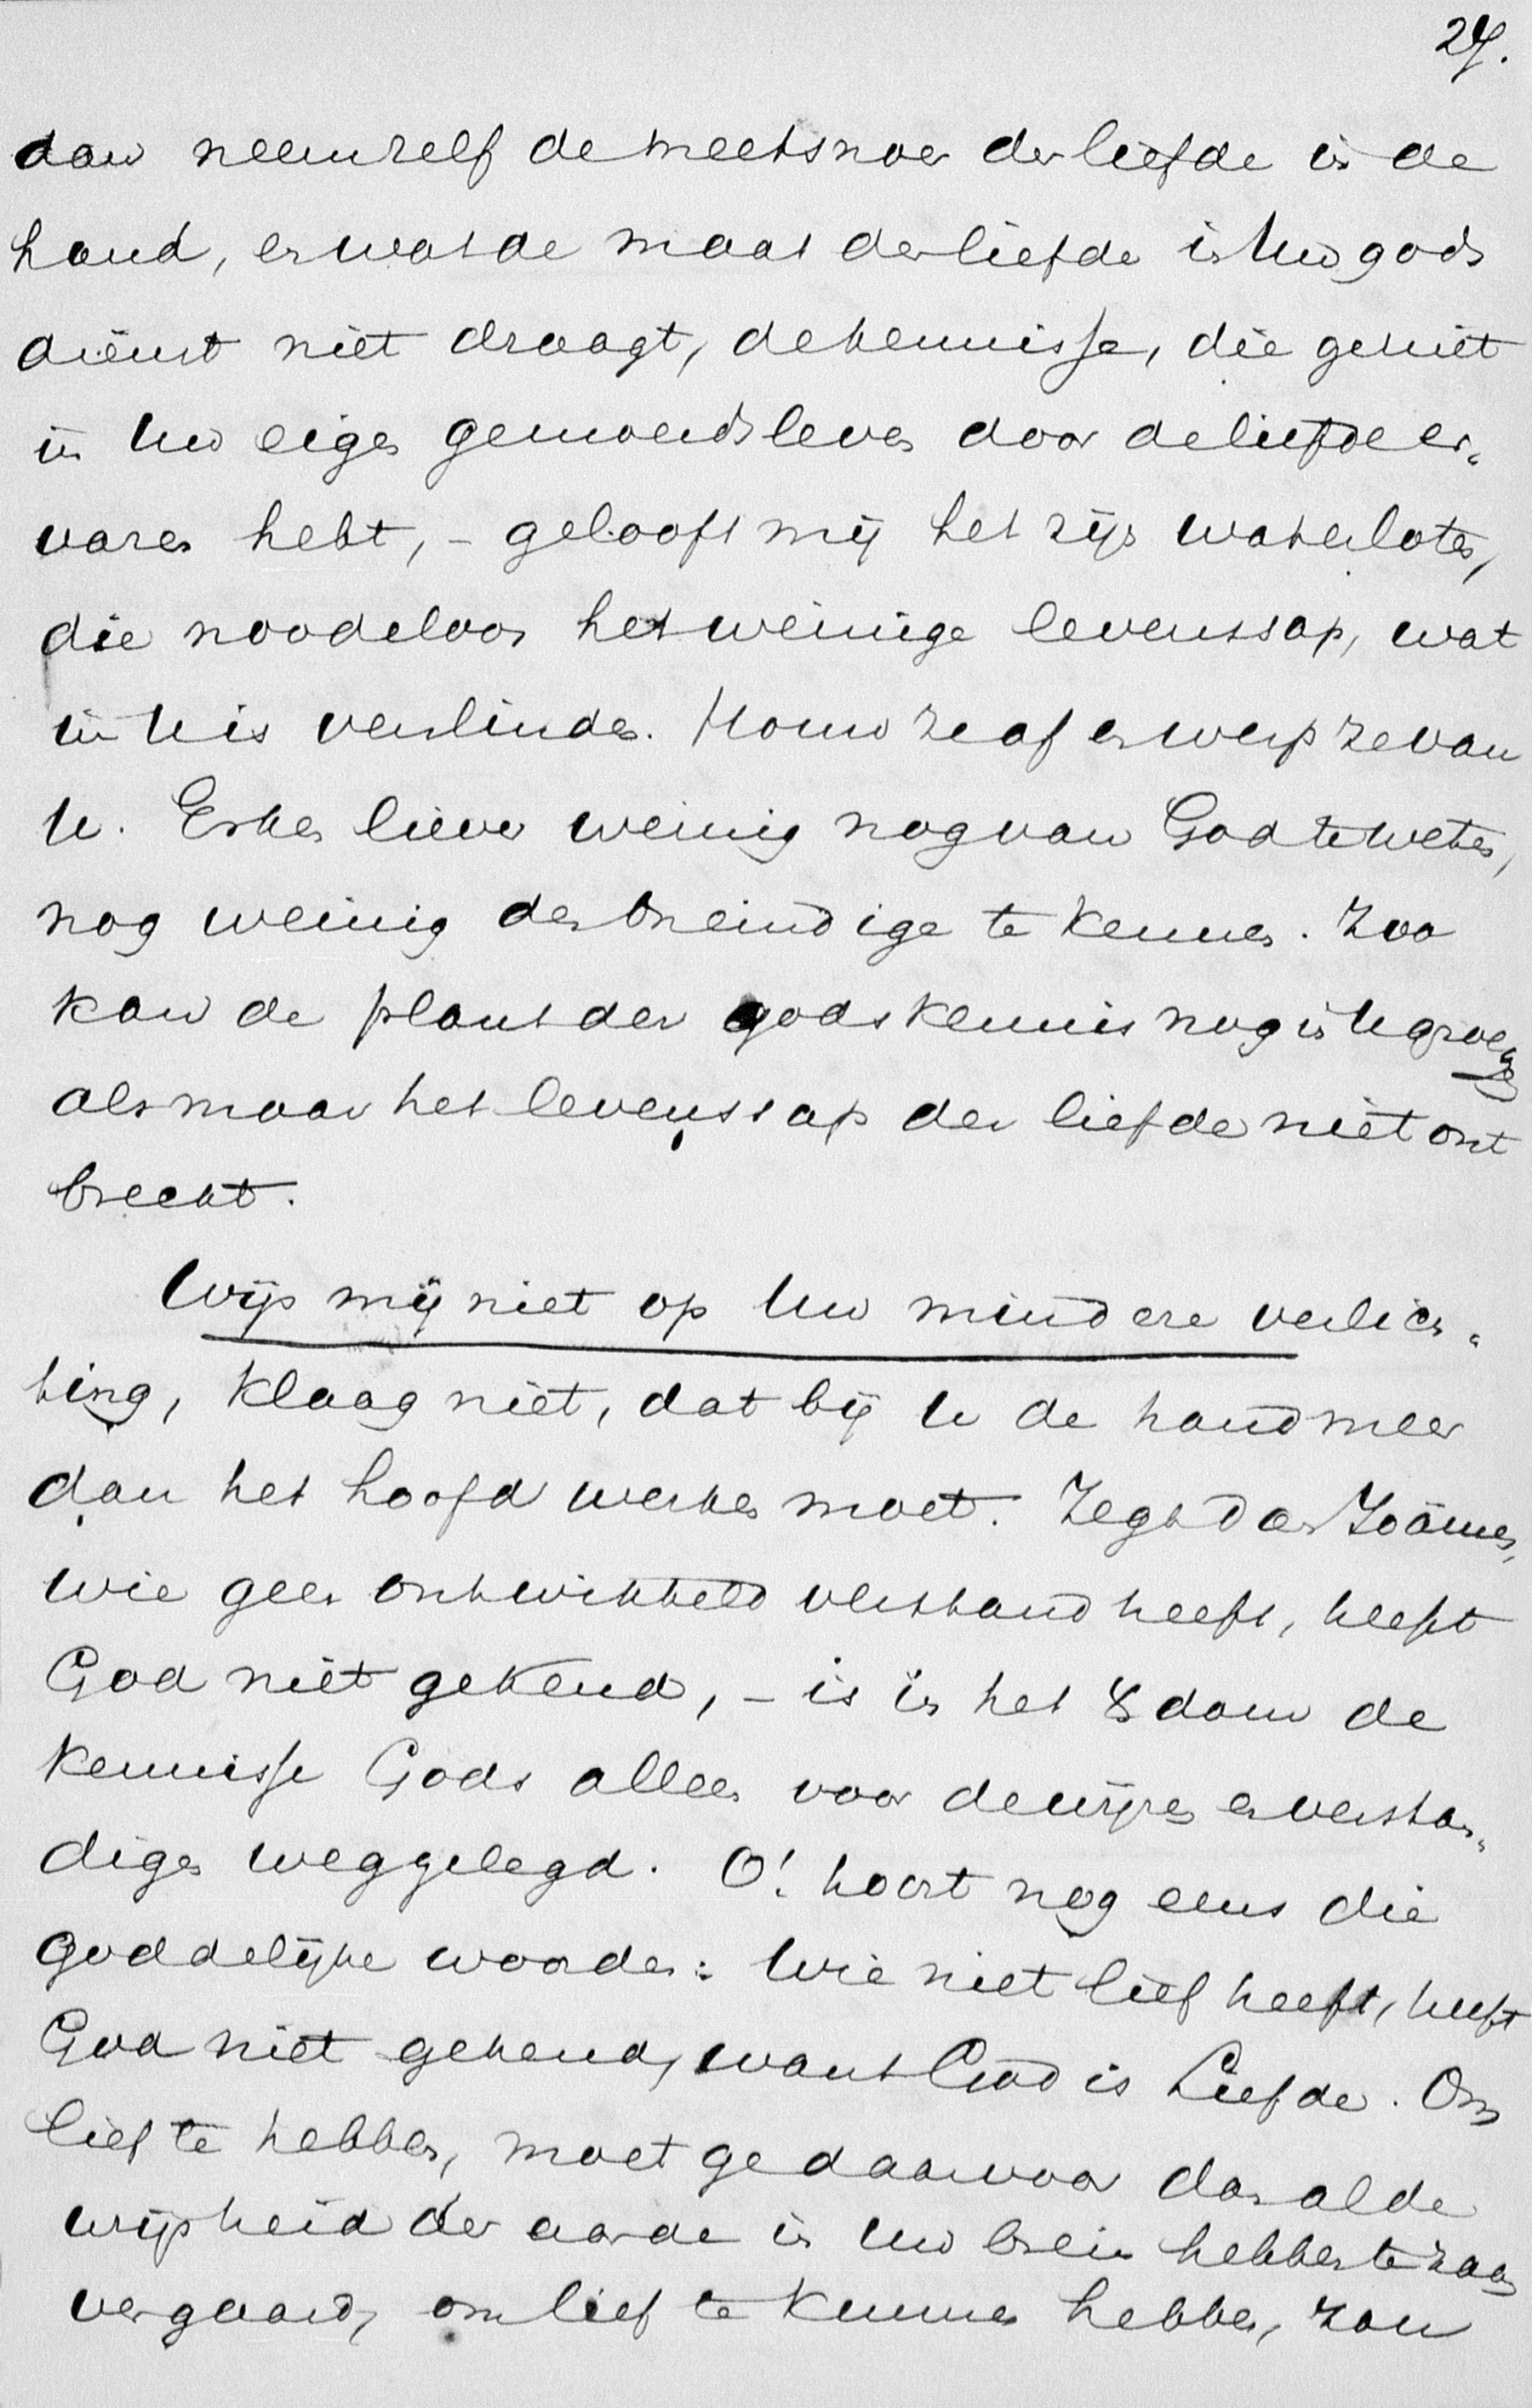 27.
dan neem zelf de meetsnoer der liefde in de
hand, en wat de maat der liefde in Uw gods
dienst niet draagt, de kennisse, die ge niet
in Uw eigen gemoedsleven door de liefde er„
varen hebt, – gelooft mij het zijn waterloten,
die noodeloos het weinige levenssap, wat
in U is verslinden. Houw ze af en werp ze van
U. Erken liever weinig nog van God te weten,
nog weinig den Oneindige te kennen. Zoo
kan de plant der godskennis nog in U groeyen
als maar het levenssap der liefde niet ont
breekt.
Wijs mij niet op Uw mindere verlich„
ting, klaag niet, dat bij U de hand meer
dan het hoofd werken moet. Zegt dan Joännes,
wie geen ontwikkeld verstand heeft, heeft
God niet gekend, – is in het & dan de
kennisse Gods alleen voor de wijzen en verstan„
digen weggelegd. O! hoort nog eens die
goddelijke woorden: Wie niet lief heeft, heeft
God niet gekend, want God is Liefde. Om
lief te hebben, moet ge daarvoor dan al de
wijsheid der aarde in Uw brein hebben te zaam
vergaard, om lief te kunnen hebben, zou